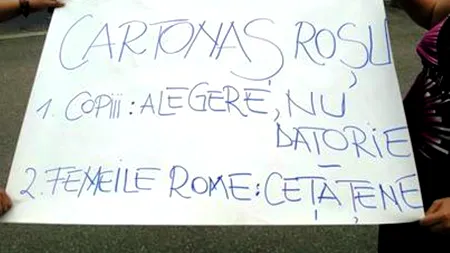 CARTONAȘ ROȘU
1. COPIII: ALEGERE, NU
DATORIE
2. FEMEILE ROME: CETĂȚENE